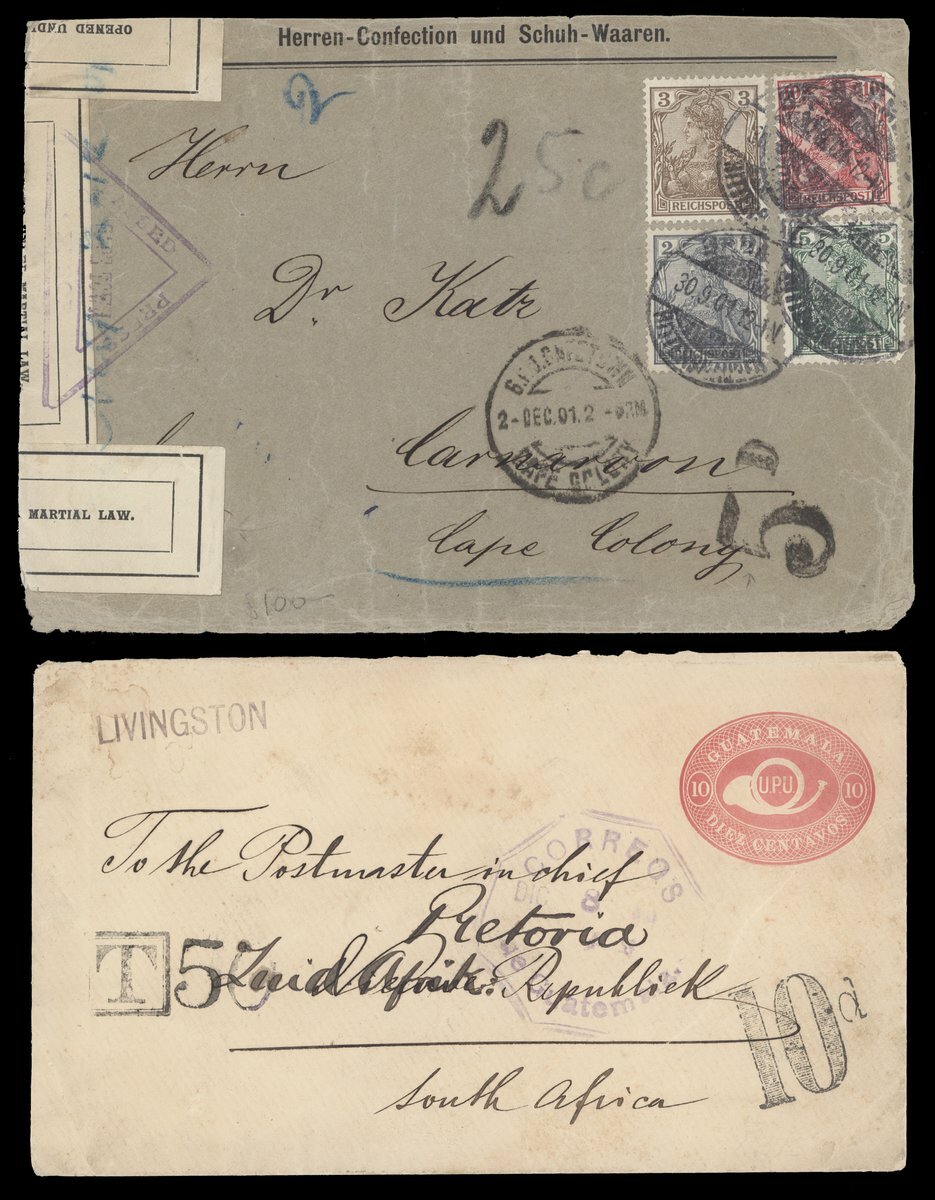 OPENED UND
Herren-Confection und Schuh-Waaren.
2
Herrn
25c
3 3
REICHSPOST
10
REICHSPOST
MARTIAL LAW
Dr. Katz
2
REICHSPOST
30.9.01.12-1N
5
REICHSPOST
CAPE COLONY
2-DEC.01.2
Carnarvon
MARTIAL LAW.
Cape Colony
5 D
$100-
LIVINGSTON
GUATEMALA
10 U.P.U 10
DIEZ CENTAVOS
CORREOS
DIC 8
de Guatemala
To the Postmaster in chief
Pretoria
T 50
Zuid Afrik: Republiek
10d
South Africa